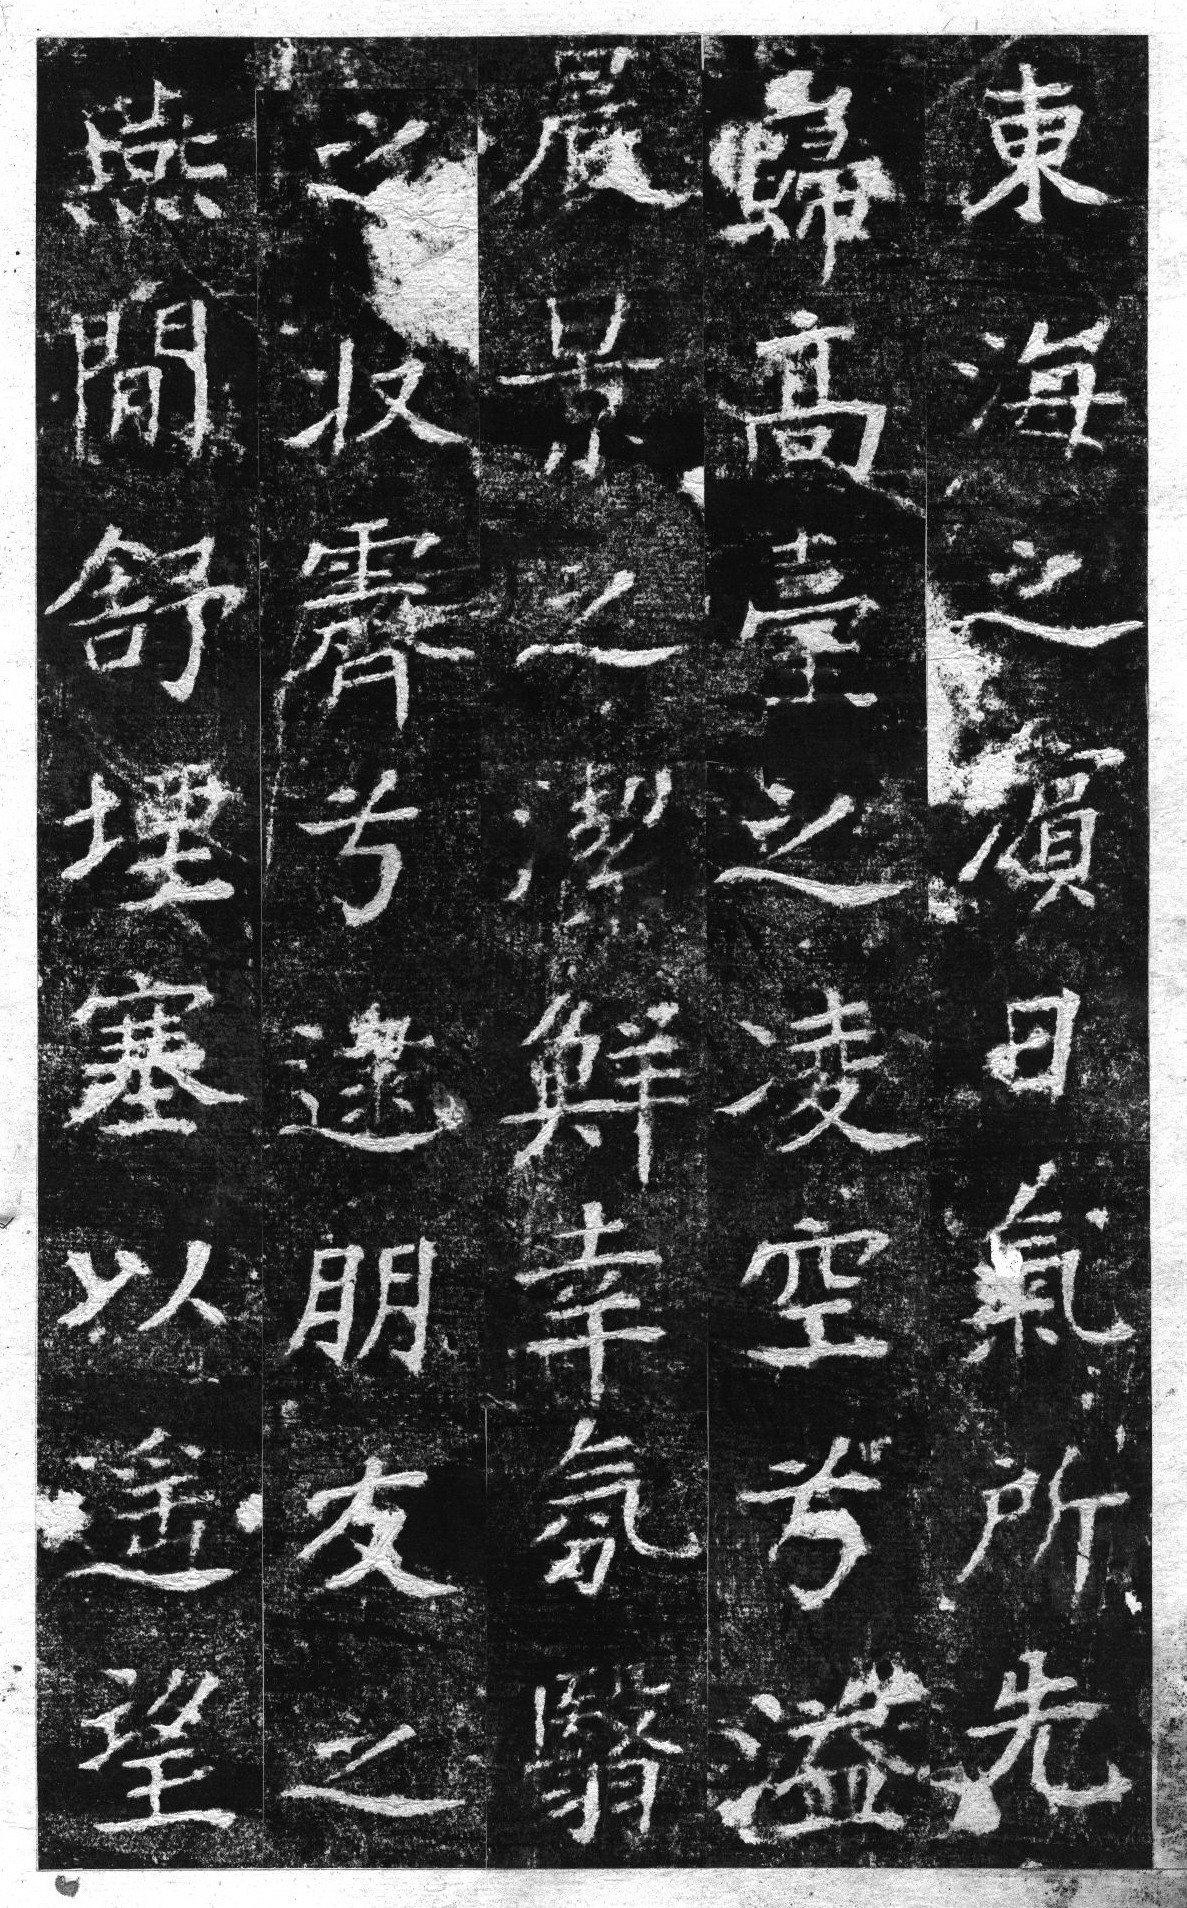 東海之濱日氣所先
歸高臺之凌空兮溢
晨景之潔鮮幸氛翳
之收霽兮逮朋友之
燕閒舒堙塞以遥望